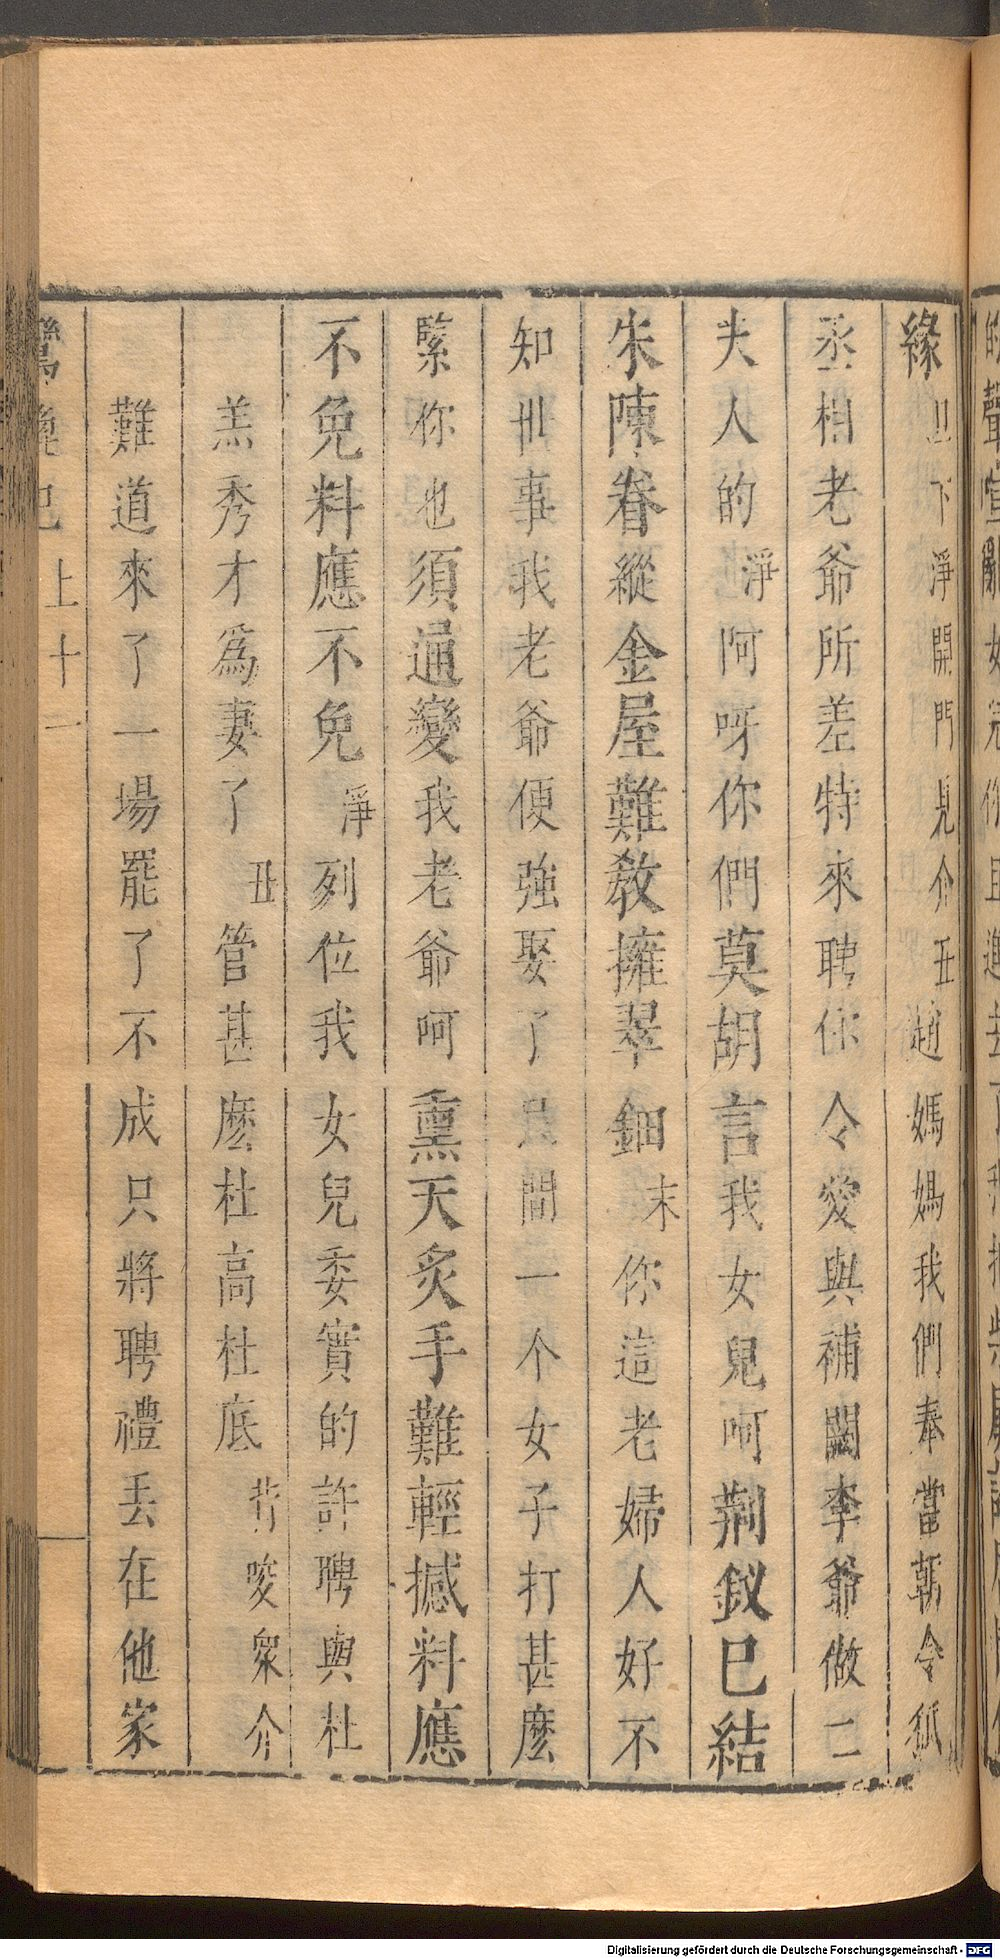 緣旦下淨開門見介丑趙媽媽我們奉當朝令狐
丞相老爺所差特來聘你令愛與補闕李爺做二
夫人的淨阿呀你們莫胡言我女兒呵荆釵已結
朱陳眷縱金屋難教擁翠鈿末你這老婦人好不
知世事我老爺便強娶了民間一个女子打甚麽
緊你也須通變我老爺呵熏天炙手難輕撼料應
不免料應不免淨列位我女兒委實的許聘與杜
羔秀才爲妻了丑管甚麽杜高杜底背唆衆介
難道來了一場罷了不成只將聘禮丢在他家
鸞鎞記 上 十一
Digitalisierung gefördert durch die Deutsche Forschungsgemeinschaft - DFG